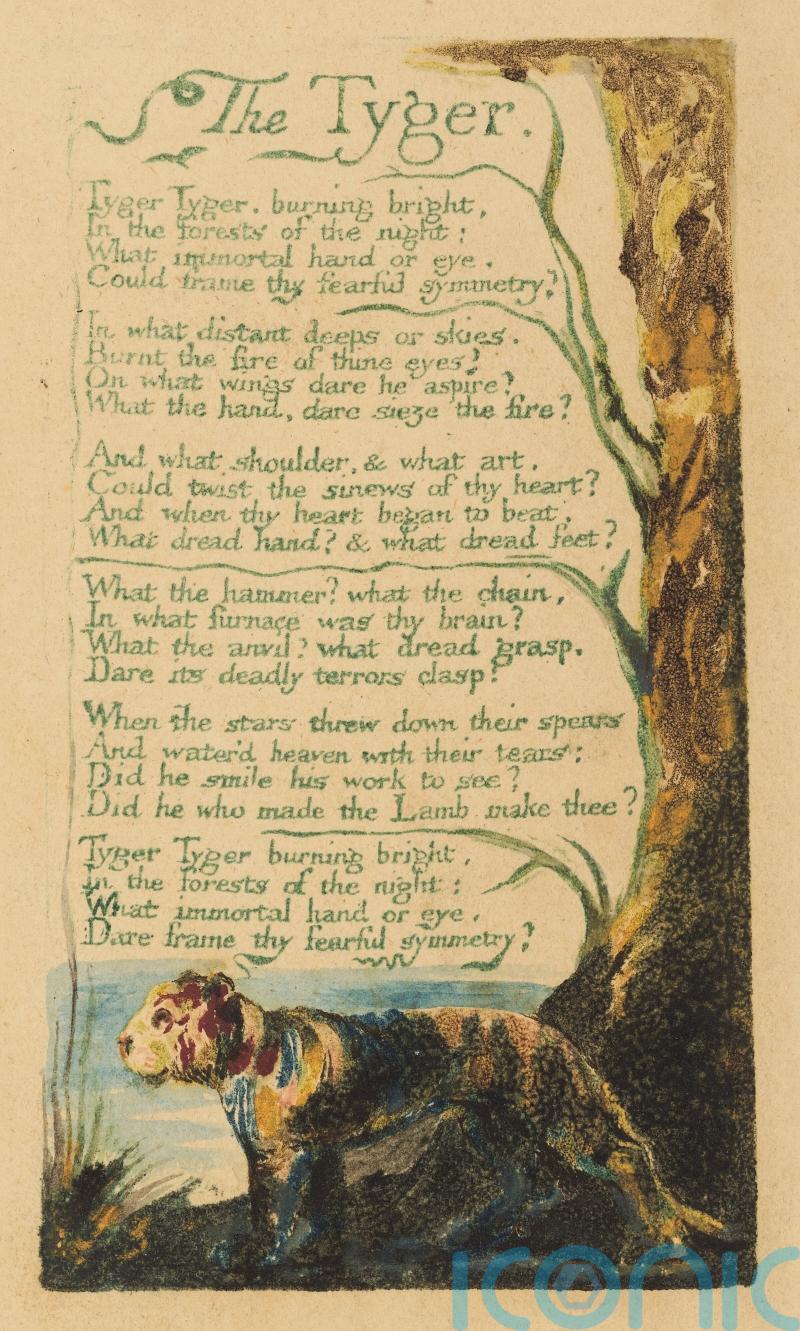 The Tyger.
Tyger Tyger. burning bright,
In the forests of the night:
What immortal hand or eye.
Could frame thy fearful symmetry?
In what distant deeps or skies.
Burnt the fire of thine eyes?
On what wings dare he aspire?
What the hand, dare sieze the fire?
And what shoulder, & what art.
Could twist the sinews of thy heart?
And when thy heart began to beat,
What dread hand? & what dread feet?
What the hammer? what the chain,
In what furnace was thy brain?
What the anvil? what dread grasp.
Dare its deadly terrors clasp!
When the stars threw down their spears
And water'd heaven with their tears:
Did he smile his work to see?
Did he who made the Lamb make thee?
Tyger Tyger burning bright,
In the forests of the night:
What immortal hand or eye,
Dare frame thy fearful symmetry?
ICONIC